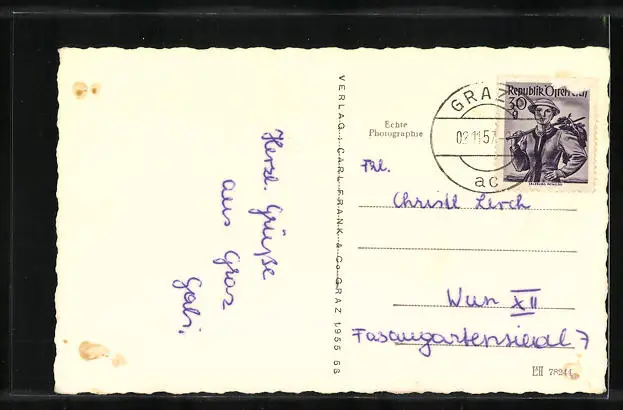 Herzl. Grüße
aus Graz
Gabi.
VERLAG: CARL FRANK & Co GRAZ 1955 53
Echte
Photographie
GRAZ
02.11.57
ac
Republik Österreich
30 g
Frl.
Christl Lerch
Wien XII
Fasangartensiedl 7
78244